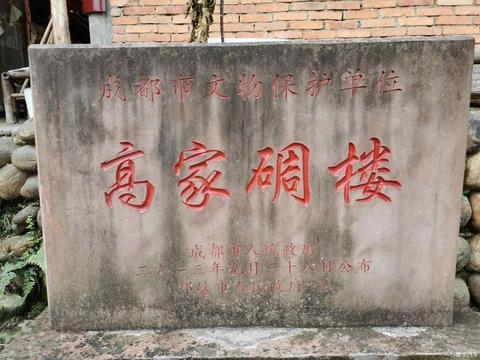 成都市文物保护单位
高家碉楼
成都市人民政府
二〇一三年九月二十八日公布
邛崃市人民政府 立